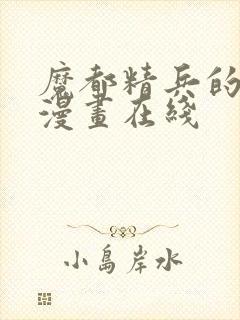 魔都精兵的
漫畫在綫
小島岸水